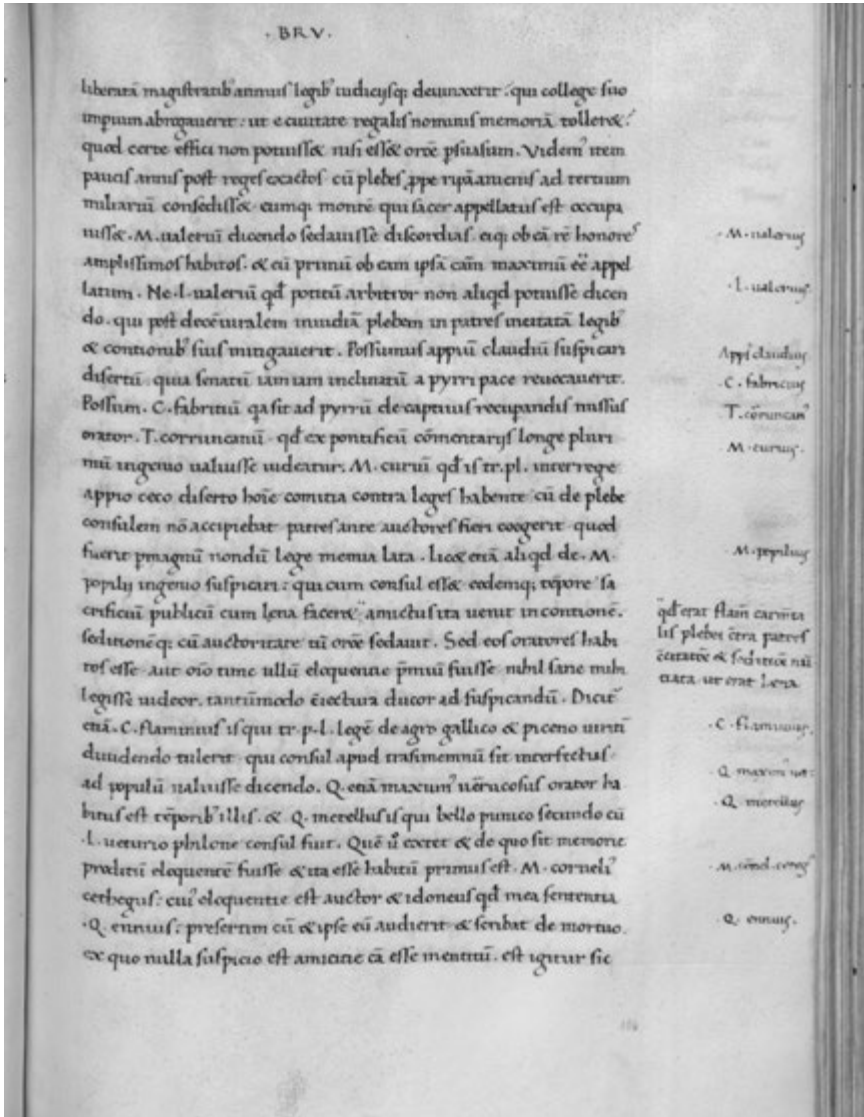 · BRV ·
liberatā magistratib' annuis legib' iudicijsq; deuinxerit : qui college suo
imp̄ium abrogauerit : ut e ciuitate regalis nominis memoriā tolleret :
quod certe effici non potuisset nisi esset orōe p̄suasum . Videm' item
paucis annis post reges exactos cū plebes prope ripā anienis ad tertium
miliariū consedisset eumq; montē qui sacer appellatus est occupa
uisset . M . ualeriū dicendo sedauisse discordias . eiq; ob eā rē honores
amplissimos habitos . et eū primū ob eam ipsā cām maximū eē appel
latum . Ne . l . ualeriū qd̄ potitū arbitror non aliqd potuisse dicen
do . qui post decēuiralem inuidiā plebem in patres incitatā legib'
et contionib' suis mitigauerit . Possumus appiū claudiū suspicari
disertū . quia senatū iam iam inclinatū a pyrri pace reuocauerit .
Possum . C . fabritiū qa sit ad pyrrū de captiuis recupandis missus
orator . T . corruncaniū qd̄ ex pontificū cōmentarijs longe pluri
mū ingenio ualuisse uideatur . M . curiū qd̄ is tr . pl . interrege
appio ceco diserto hoīe comitia contra leges habente cū de plebe
consulem nō accipiebat patres ante auctores fieri coegerit quod
fuerit p̄magnū nondū lege memia lata . licet etiā aliqd de . M .
popilij ingenio suspicari : qui cum consul esset eodemq; tēpore sa
crificiū publicū cum lena faceret amictus ita uenit in contionē .
seditionēq; cū auctoritate tū orōe sedauit . Sed eos oratores habi
tos esse aut oīo tunc ullū eloquentie p̄miū fuisse nihil sane mihi
legisse uideor . tantūmodo cōiectura ducor ad suspicandū . Dicit'
etiā . C . flaminius is qui tr . p . l . legē de agro gallico et piceno uiritī
diuidendo tulerit qui consul apud trasimennū sit interfectus
ad populū ualuisse dicendo . Q . etiā maxim' uerrucosus orator ha
bitus est tēporib' illis . et Q . metellus is qui bello punico secundo cū
· l . ueturio philone consul fuit . Quē ū extet et de quo sit memorie
proditū eloquentē fuisse et ita esse habitū primus est . M . corneli'
cethegus : cui' eloquentie est auctor et idoneus qd̄ mea sententia
· Q . ennius : presertim cū et ipse eū audierit et scribat de mortuo .
ex quo nulla suspicio est amicitie cā esse mentitū . est igitur sic
· M . ualerius
· l . ualerius
App' claudius
· C . fabricius
T . corruncan'
M . curius .
· M . popilius
qd̄ erat flam̄ carm̄ta
lis plebei cōtra patres
cōcitatōe et seditiōe nū
tiata ut erat lena
· C . flaminius .
· Q maxim' uer :
· Q . metellus
· M . cornel . ceteg'
· Q . ennius .